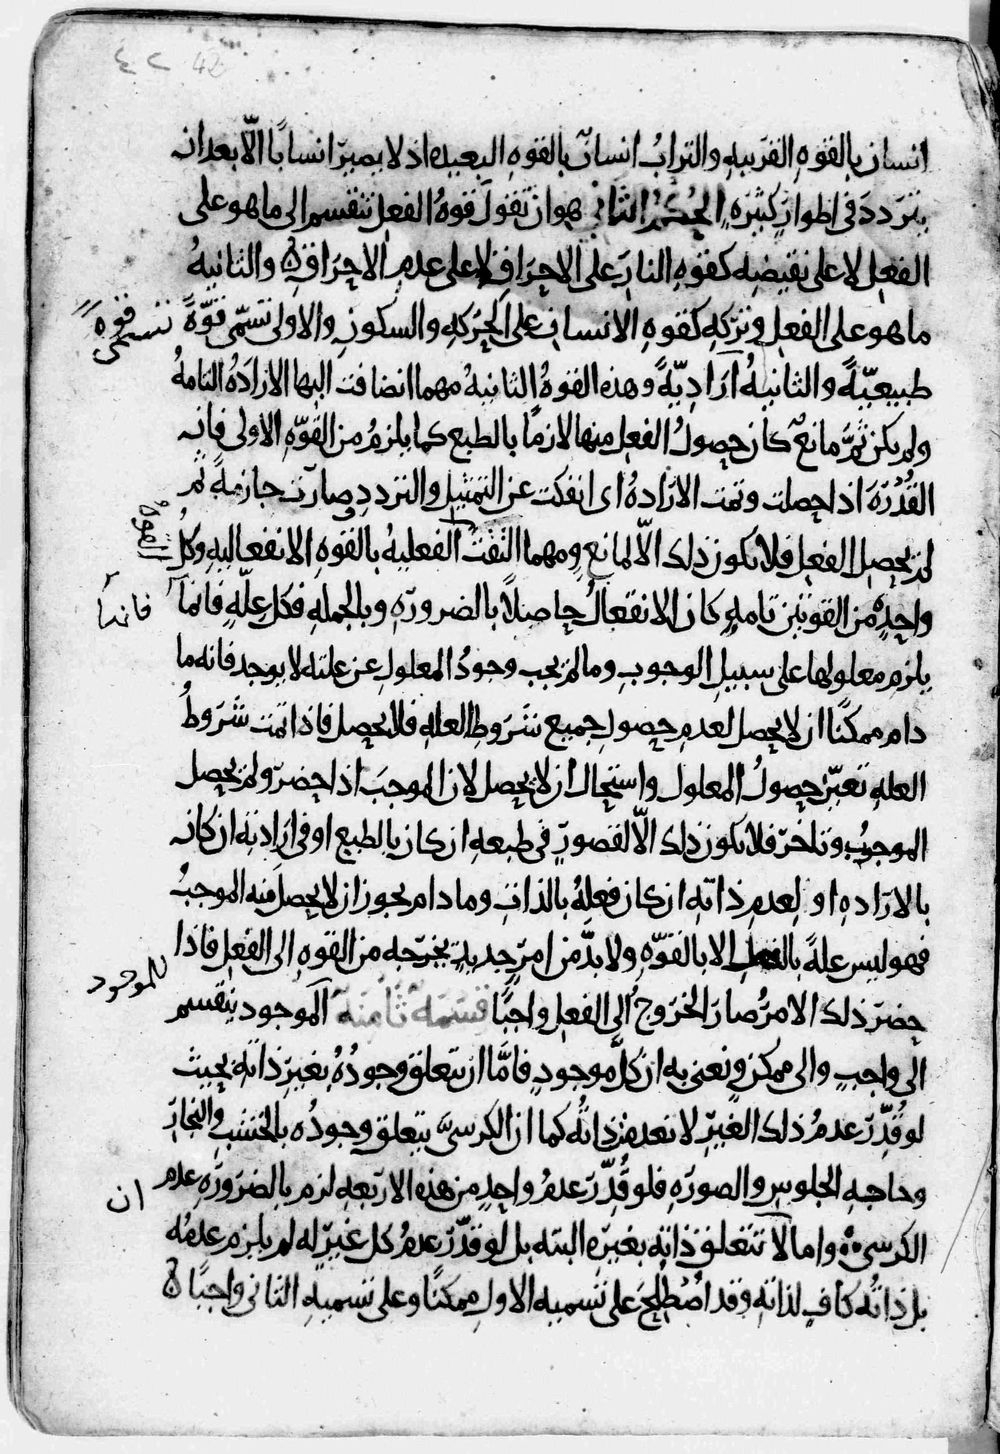 ٤٢ 42
انسان بالقوه القريبه والتراب انسانٌ بالقوه البعيده اذ لا يصير انسانًا الّا بعد ان
يتردد فى اطوار كثيره الحكم الثانى هو ان تقول قوه الفعل تنقسم الى ما هو على
الفعل لا على نقيضه كقوه النار على الاحراق لا على عدم الاحراق والثانيهُ
ما هو على الفعل وتركه كقوه الانسان على الحركه والسكون والاولى تسمّى قوّةً
تسمى قوه
طبيعيّةً والثانيهُ اراديّةً وهذه القوهُ الثانيهُ مهما انضافت اليها الارادهُ التامهُ
ولم يكن ثمَّ مانعٌ كان حصولُ الفعل منها لازمًا بالطبع كما يلزمُ من القوّهِ الاولى فان
القُدْرَهَ اذا حصلت وتمت الارادهُ اى انفكت عن التمثيل والتردد وصارت جازمةً ثم
لم يحصل الفعل فلا يكون ذلك الّا لمانعٍ ومهما التقت الفعليهُ بالقوهِ الانفعاليهِ وكُلُ
القوهُ
واحدهٍ من القوتين تامهٍ كان الانفعالُ حاصلًا بالضرورهِ وبالجملهِ فكل علّهٍ فانما
فانها
يلزم معلولها على سبيل الوجوبِ وما لم يجب وجودُ المعلولِ عن علته لا يوجد فانه ما
دام ممكنًا ان لا يحصل لعدم حصولِ جميع شروطِ العله فلا يحصل فاذا تمت شروطُ
العلهِ تعيّن حصولُ المعلول واستحال ان لا يحصل لان الموجبَ اذا حضر ولم يحصل
الموجبُ وتاخر فلا يكون ذلك الّا لقصورٍ فى طبعهِ ان كان بالطبع او فى ارادته ان كان
بالارادهِ او لعدمِ ذاتهِ ان كان فعلهُ بالذاتِ وما دام يجوز ان لا يحصل منه الموجبُ
فهو ليس علةً بالفعل الا بالقوّهِ ولا بدّ من امرٍ جديدٍ يخرجه من القوهِ الى الفعل فاذا
حضر ذلك الامرُ صار الخروجُ الى الفعل واجبًا قسمة ثامنة الموجود ينقسم
للموجود
الى واجبٍ والى ممكنٍ ونعنى به ان كلَّ موجودٍ فامّا ان يتعلق وجودُهُ بغير ذاتهِ بحيث
لو قُدّرَ عدمُ ذلك الغيرِ لانعدم ذاتُه كما ان الكرسىَّ يتعلق وجودُه بالخشب والنجار
وحاجهِ الجلوسِ والصورهِ فلو قُدِّر عدمُ واحدٍ من هذه الاربعهِ لزم بالضرورهِ عدم
ان
الكرسى واما لا تتعلق ذاته بغيره البته بل لو قدّر عدمُ كل غيرٍ له لم يلزم عدمُه
بل ذاتُه كافٍ لذاته وقد اُصْطُلِحَ على تسميه الاول ممكنًا وعلى تسميهِ الثانى واجبًا